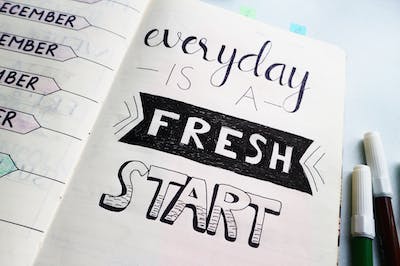 DECEMBER
EMBER
MBER
BER
everyday
IS A
FRESH
START